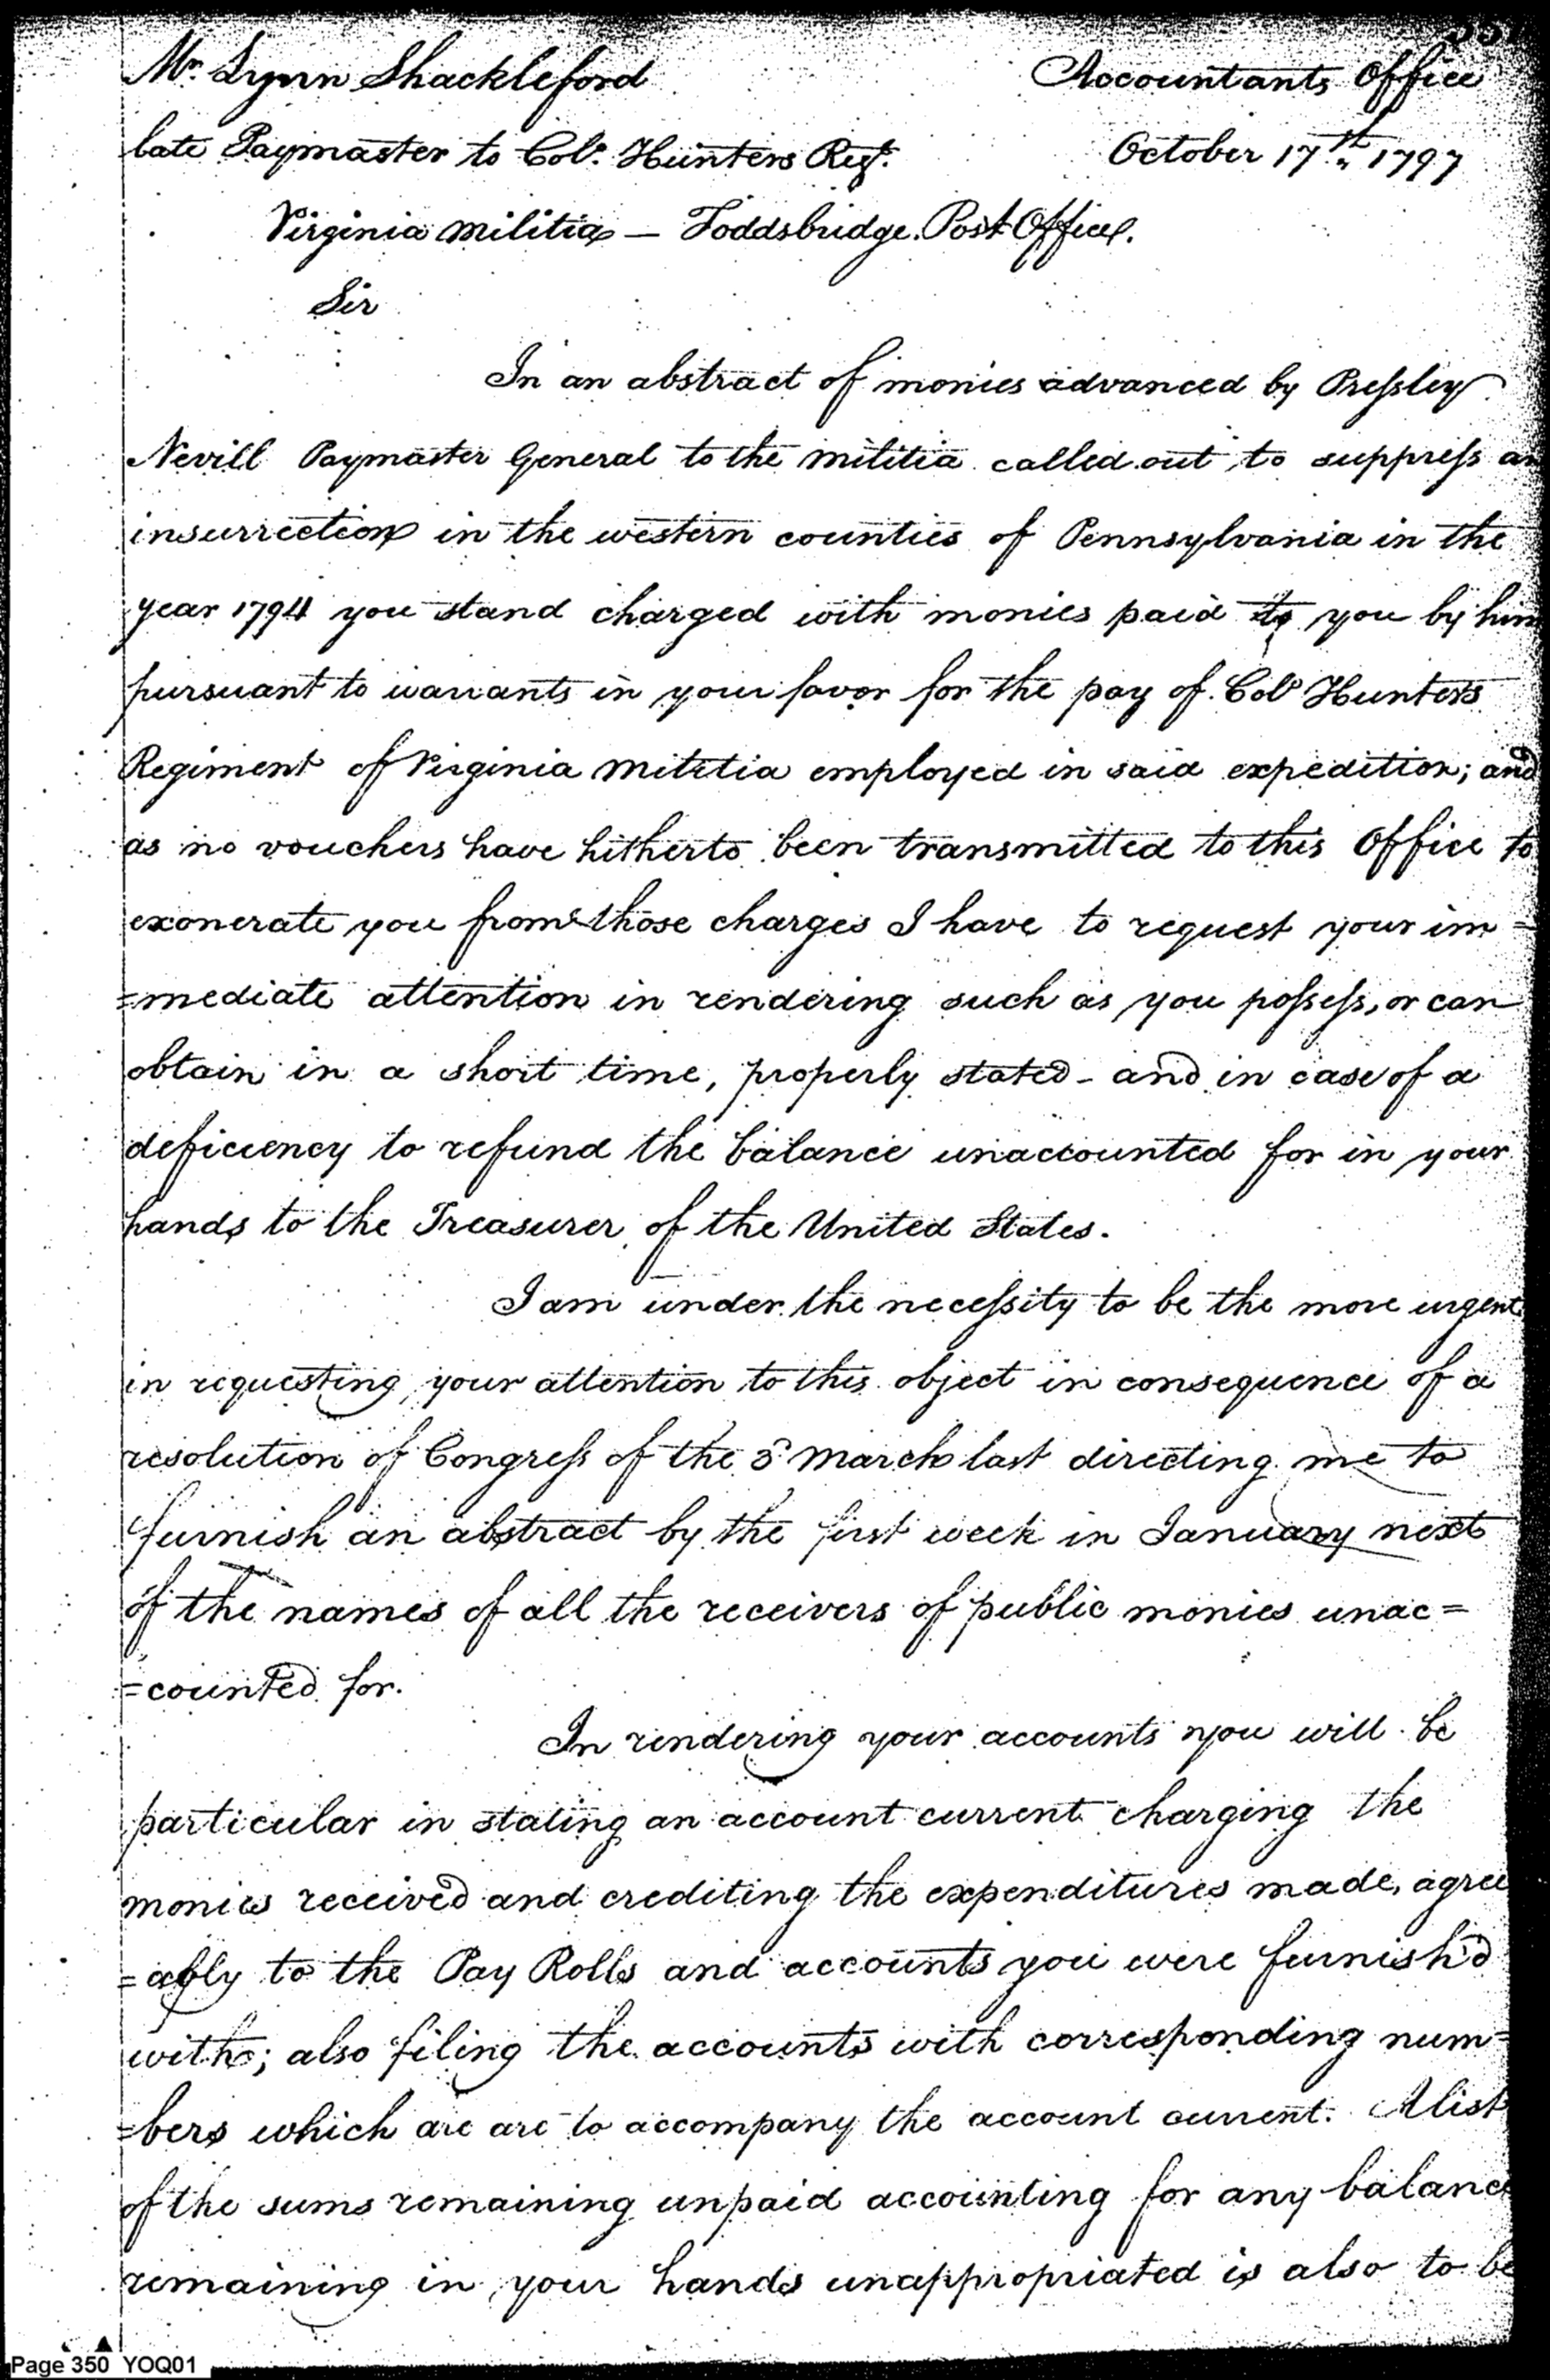 Mr. Lynn Shackleford
Accountants Office
late Paymaster to Colo. Hunters Regt.
October 17th. 1797
Virginia Militia — Toddsbridge. Post Office.
Sir
In an abstract of monies advanced by Pressley
Nevill Paymaster General to the militia called out to suppress an
insurrection in the western counties of Pennsylvania in the
year 1794 you stand charged with monies paid to you by him
pursuant to warrants in your favor for the pay of Colo Hunters
Regiment of Virginia Militia employed in said expedition; and
as no vouchers have hitherto been transmitted to this Office to
exonerate you from those charges I have to request your im=
=mediate attention in rendering such as you possess, or can
obtain in a short time, properly stated - and in case of a
deficiency to refund the balance unaccounted for in your
hands to the Treasurer of the United States.
I am under the necessity to be the more urgent
in requesting your attention to this object in consequence of a
resolution of Congress of the 3d March last directing me to
furnish an abstract by the first week in January next
of the names of all the receivers of public monies unac=
=counted for.
In rendering your accounts you will be
particular in stating an account current charging the
monies received and crediting the expenditures made, agree
=ably to the Pay Rolls and accounts you were furnish'd
with; also filing the accounts with corresponding num=
=bers which are are to accompany the account current. A list
of the sums remaining unpaid accounting for any balance
remaining in your hands unappropriated is also to be
Page 350 YOQ01